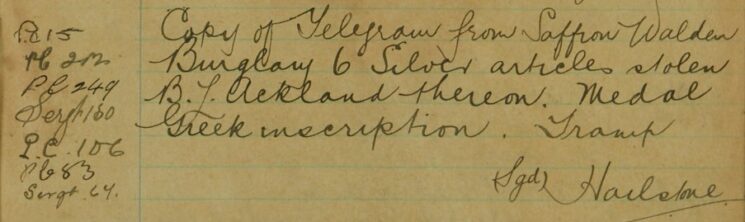 P.C 15
PC 202
PC 249
Sergt 160
P.C. 106
PC 83
Sergt. 64.
Copy of Telegram from Saffron Walden
Burglary 6 Silver articles stolen
B. J. Ackland thereon. Medal
Greek inscription. Tramp
(Sgd) Hailstone